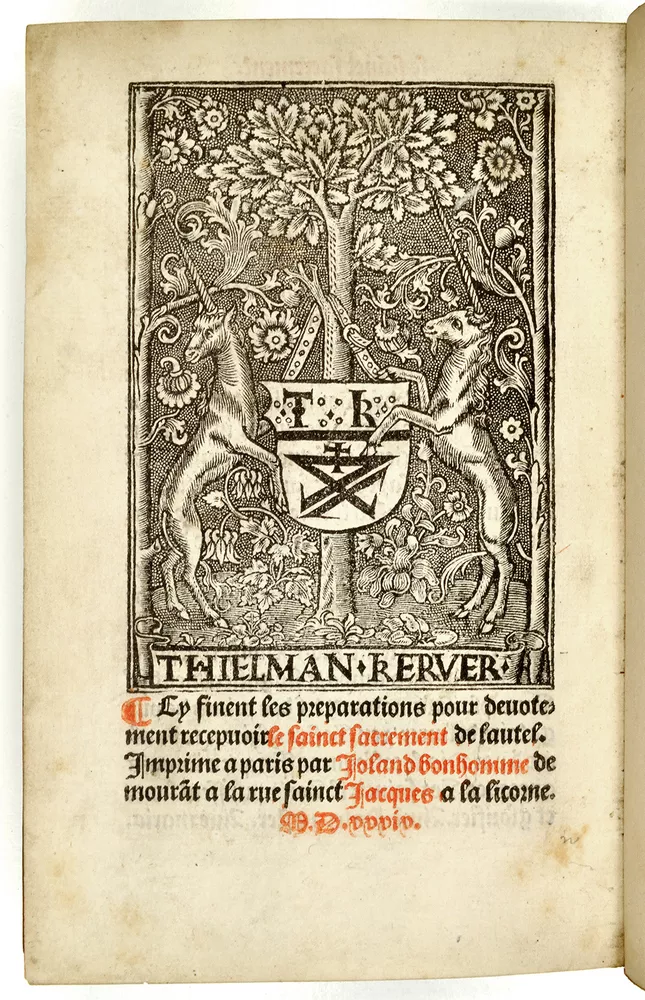 T K
THIELMAN · KERVER ·
¶ Cy finent les preparations pour deuote-
ment recepuoir le sainct sacrement de lautel.
Imprime a paris par Ioland bonhomme de
mourāt a la rue sainct Jacques a la licorne.
M. D. xxxiv.